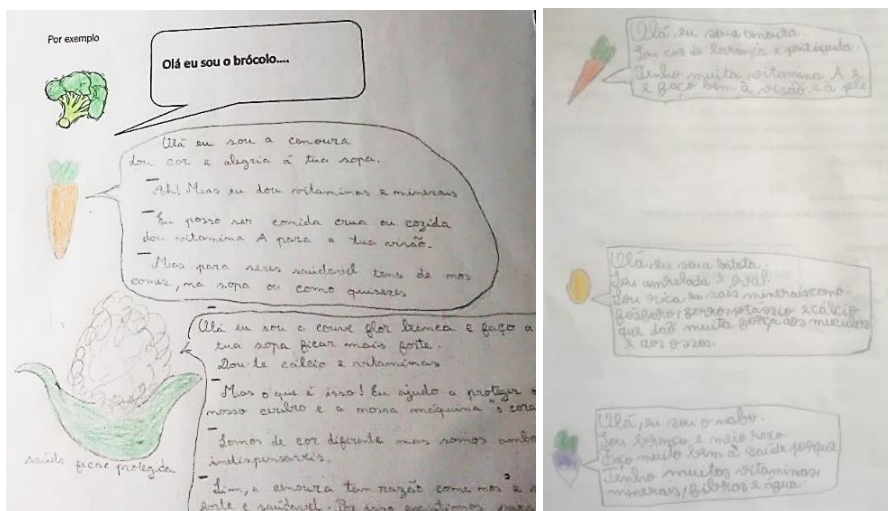 Por exemplo
Olá eu sou o brócolo....
Olá eu sou a cenoura
dou cor e alegria á tua sopa.
— Ah! Mas eu dou vitaminas e minerais
— Eu posso ser comida crua ou cozida
dou vitamina A para a tua visão.
— Mas para seres saúdavel tens de nos
comer, na sopa ou como quiseres
Olá eu sou a couve flor branca e faço a
tua sopa ficar mais forte.
Dou-te cálcio e vitaminas
— Mas o que é isso! Eu ajudo a proteger o
nosso e a nossa máquina "o cora
— Somos de cor diferente mas somos
indispensavéis.
— Sim, a cenoura tem razão come-nos e
forte e saudavel. Por isso
saúde ficar protegida
Olá, eu sou a cenoura.
Sou cor de laranja e pontiaguda.
Tenho muita vitamina A e
e faço bem à visão e à pele
Olá, eu sou a batata.
Sou amarelada e oval.
Sou rica em sais minerais como:
fósforo, ferro, potássio e cálcio
que dão muita força aos músculos
e aos ossos.
Olá, eu sou o nabo.
Sou branco e meio roxo.
Faço muito bem à saúde porque
Tenho muitas vitaminas,
minerais, fibras e água.